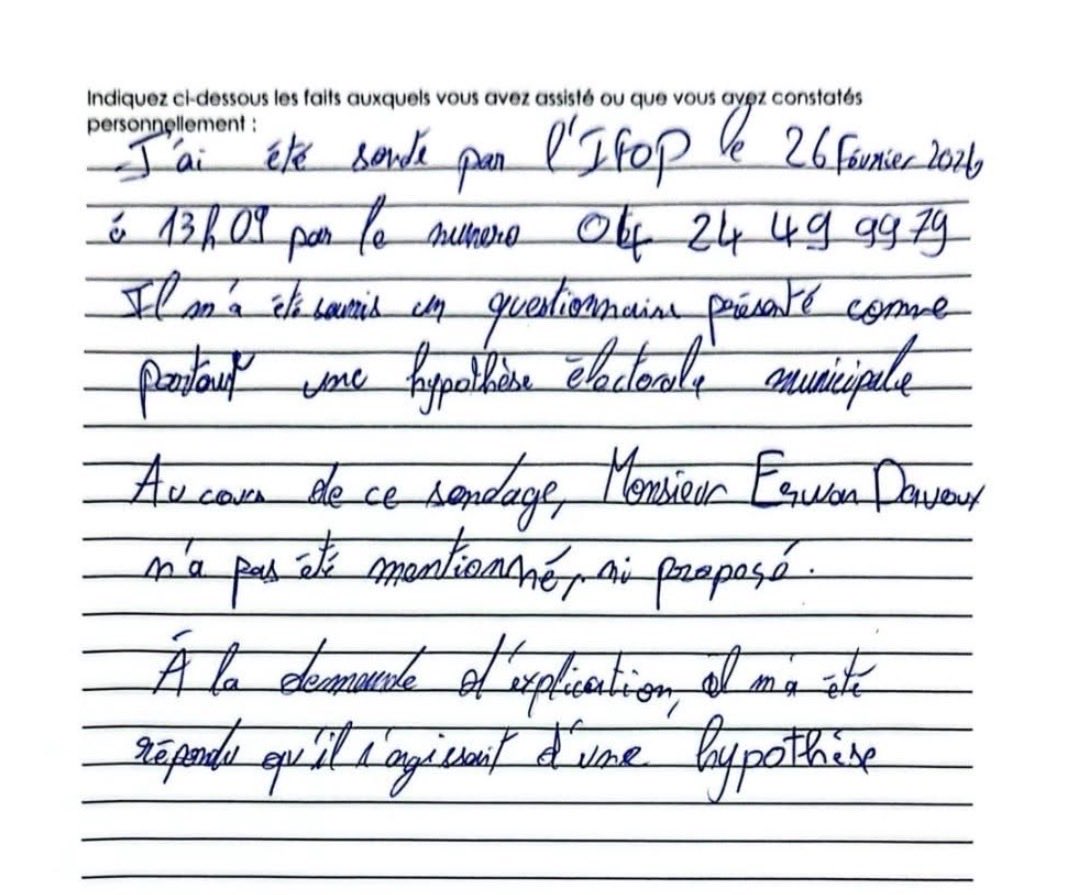 Indiquez ci-dessous les faits auxquels vous avez assisté ou que vous avez constatés
personnellement :
J'ai été sondé par l'IFOP le 26 Février 2026
à 13h09 par le numero 04 24 49 99 79
Il m'a été soumis un questionnaire présenté comme
portant une hypothèse électorale municipale
Au cours de ce sondage, Monsieur Erwan Davoux
n'a pas été mentionné, ni proposé.
À la demande d'explication, il m'a été
répondu qu'il s'agissait d'une hypothèse